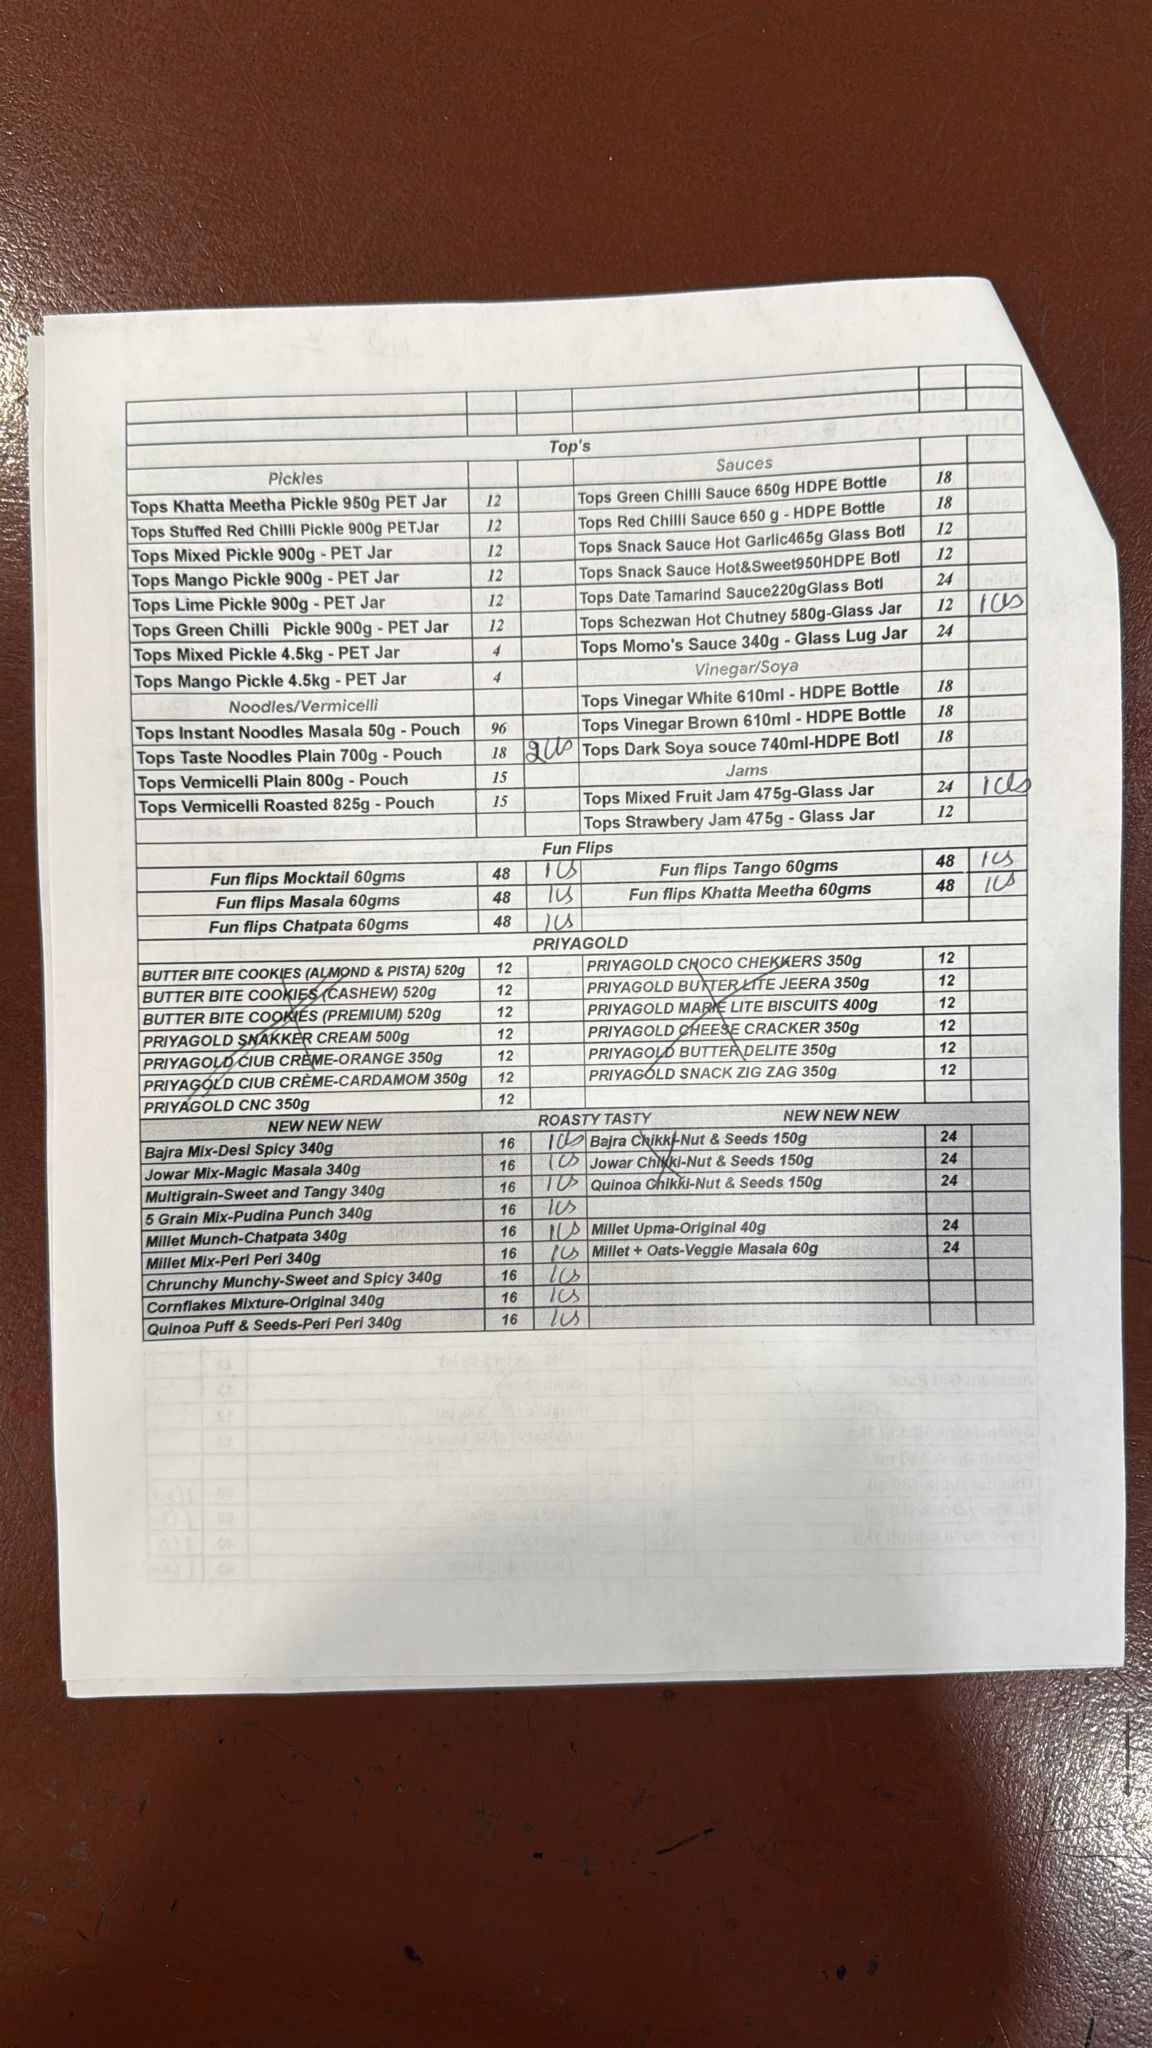 Top's
Pickles Sauces
Tops Khatta Meetha Pickle 950g PET Jar 12 Tops Green Chilli Sauce 650g HDPE Bottle 18
Tops Stuffed Red Chilli Pickle 900g PETJar 12 Tops Red Chilli Sauce 650 g - HDPE Bottle 18
Tops Mixed Pickle 900g - PET Jar 12 Tops Snack Sauce Hot Garlic465g Glass Botl 12
Tops Mango Pickle 900g - PET Jar 12 Tops Snack Sauce Hot&Sweet950HDPE Botl 12
Tops Lime Pickle 900g - PET Jar 12 Tops Date Tamarind Sauce220gGlass Botl 24
Tops Green Chilli Pickle 900g - PET Jar 12 Tops Schezwan Hot Chutney 580g-Glass Jar 12 1 cs
Tops Mixed Pickle 4.5kg - PET Jar 4 Tops Momo's Sauce 340g - Glass Lug Jar 24
Tops Mango Pickle 4.5kg - PET Jar 4 Vinegar/Soya
Noodles/Vermicelli Tops Vinegar White 610ml - HDPE Bottle 18
Tops Instant Noodles Masala 50g - Pouch 96 Tops Vinegar Brown 610ml - HDPE Bottle 18
Tops Taste Noodles Plain 700g - Pouch 18 2cs Tops Dark Soya souce 740ml-HDPE Botl 18
Tops Vermicelli Plain 800g - Pouch 15 Jams
Tops Vermicelli Roasted 825g - Pouch 15 Tops Mixed Fruit Jam 475g-Glass Jar 24 1 cs
Tops Strawbery Jam 475g - Glass Jar 12
Fun Flips
Fun flips Mocktail 60gms 48 1 cs Fun flips Tango 60gms 48 1 cs
Fun flips Masala 60gms 48 1cs Fun flips Khatta Meetha 60gms 48 1cs
Fun flips Chatpata 60gms 48 1cs
PRIYAGOLD
BUTTER BITE COOKIES (ALMOND & PISTA) 520g 12 PRIYAGOLD CHOCO CHEKKERS 350g 12
BUTTER BITE COOKIES (CASHEW) 520g 12 PRIYAGOLD BUTTER LITE JEERA 350g 12
BUTTER BITE COOKIES (PREMIUM) 520g 12 PRIYAGOLD MARIE LITE BISCUITS 400g 12
PRIYAGOLD SNAKKER CREAM 500g 12 PRIYAGOLD CHEESE CRACKER 350g 12
PRIYAGOLD CIUB CRÈME-ORANGE 350g 12 PRIYAGOLD BUTTER DELITE 350g 12
PRIYAGOLD CIUB CRÈME-CARDAMOM 350g 12 PRIYAGOLD SNACK ZIG ZAG 350g 12
PRIYAGOLD CNC 350g 12
NEW NEW NEW ROASTY TASTY NEW NEW NEW
Bajra Mix-Desi Spicy 340g 16 1cs Bajra Chikki-Nut & Seeds 150g 24
Jowar Mix-Magic Masala 340g 16 1cs Jowar Chikki-Nut & Seeds 150g 24
Multigrain-Sweet and Tangy 340g 16 1cs Quinoa Chikki-Nut & Seeds 150g 24
5 Grain Mix-Pudina Punch 340g 16 1cs
Millet Munch-Chatpata 340g 16 1cs Millet Upma-Original 40g 24
Millet Mix-Peri Peri 340g 16 1cs Millet + Oats-Veggie Masala 60g 24
Chrunchy Munchy-Sweet and Spicy 340g 16 1cs
Cornflakes Mixture-Original 340g 16 1cs
Quinoa Puff & Seeds-Peri Peri 340g 16 1cs